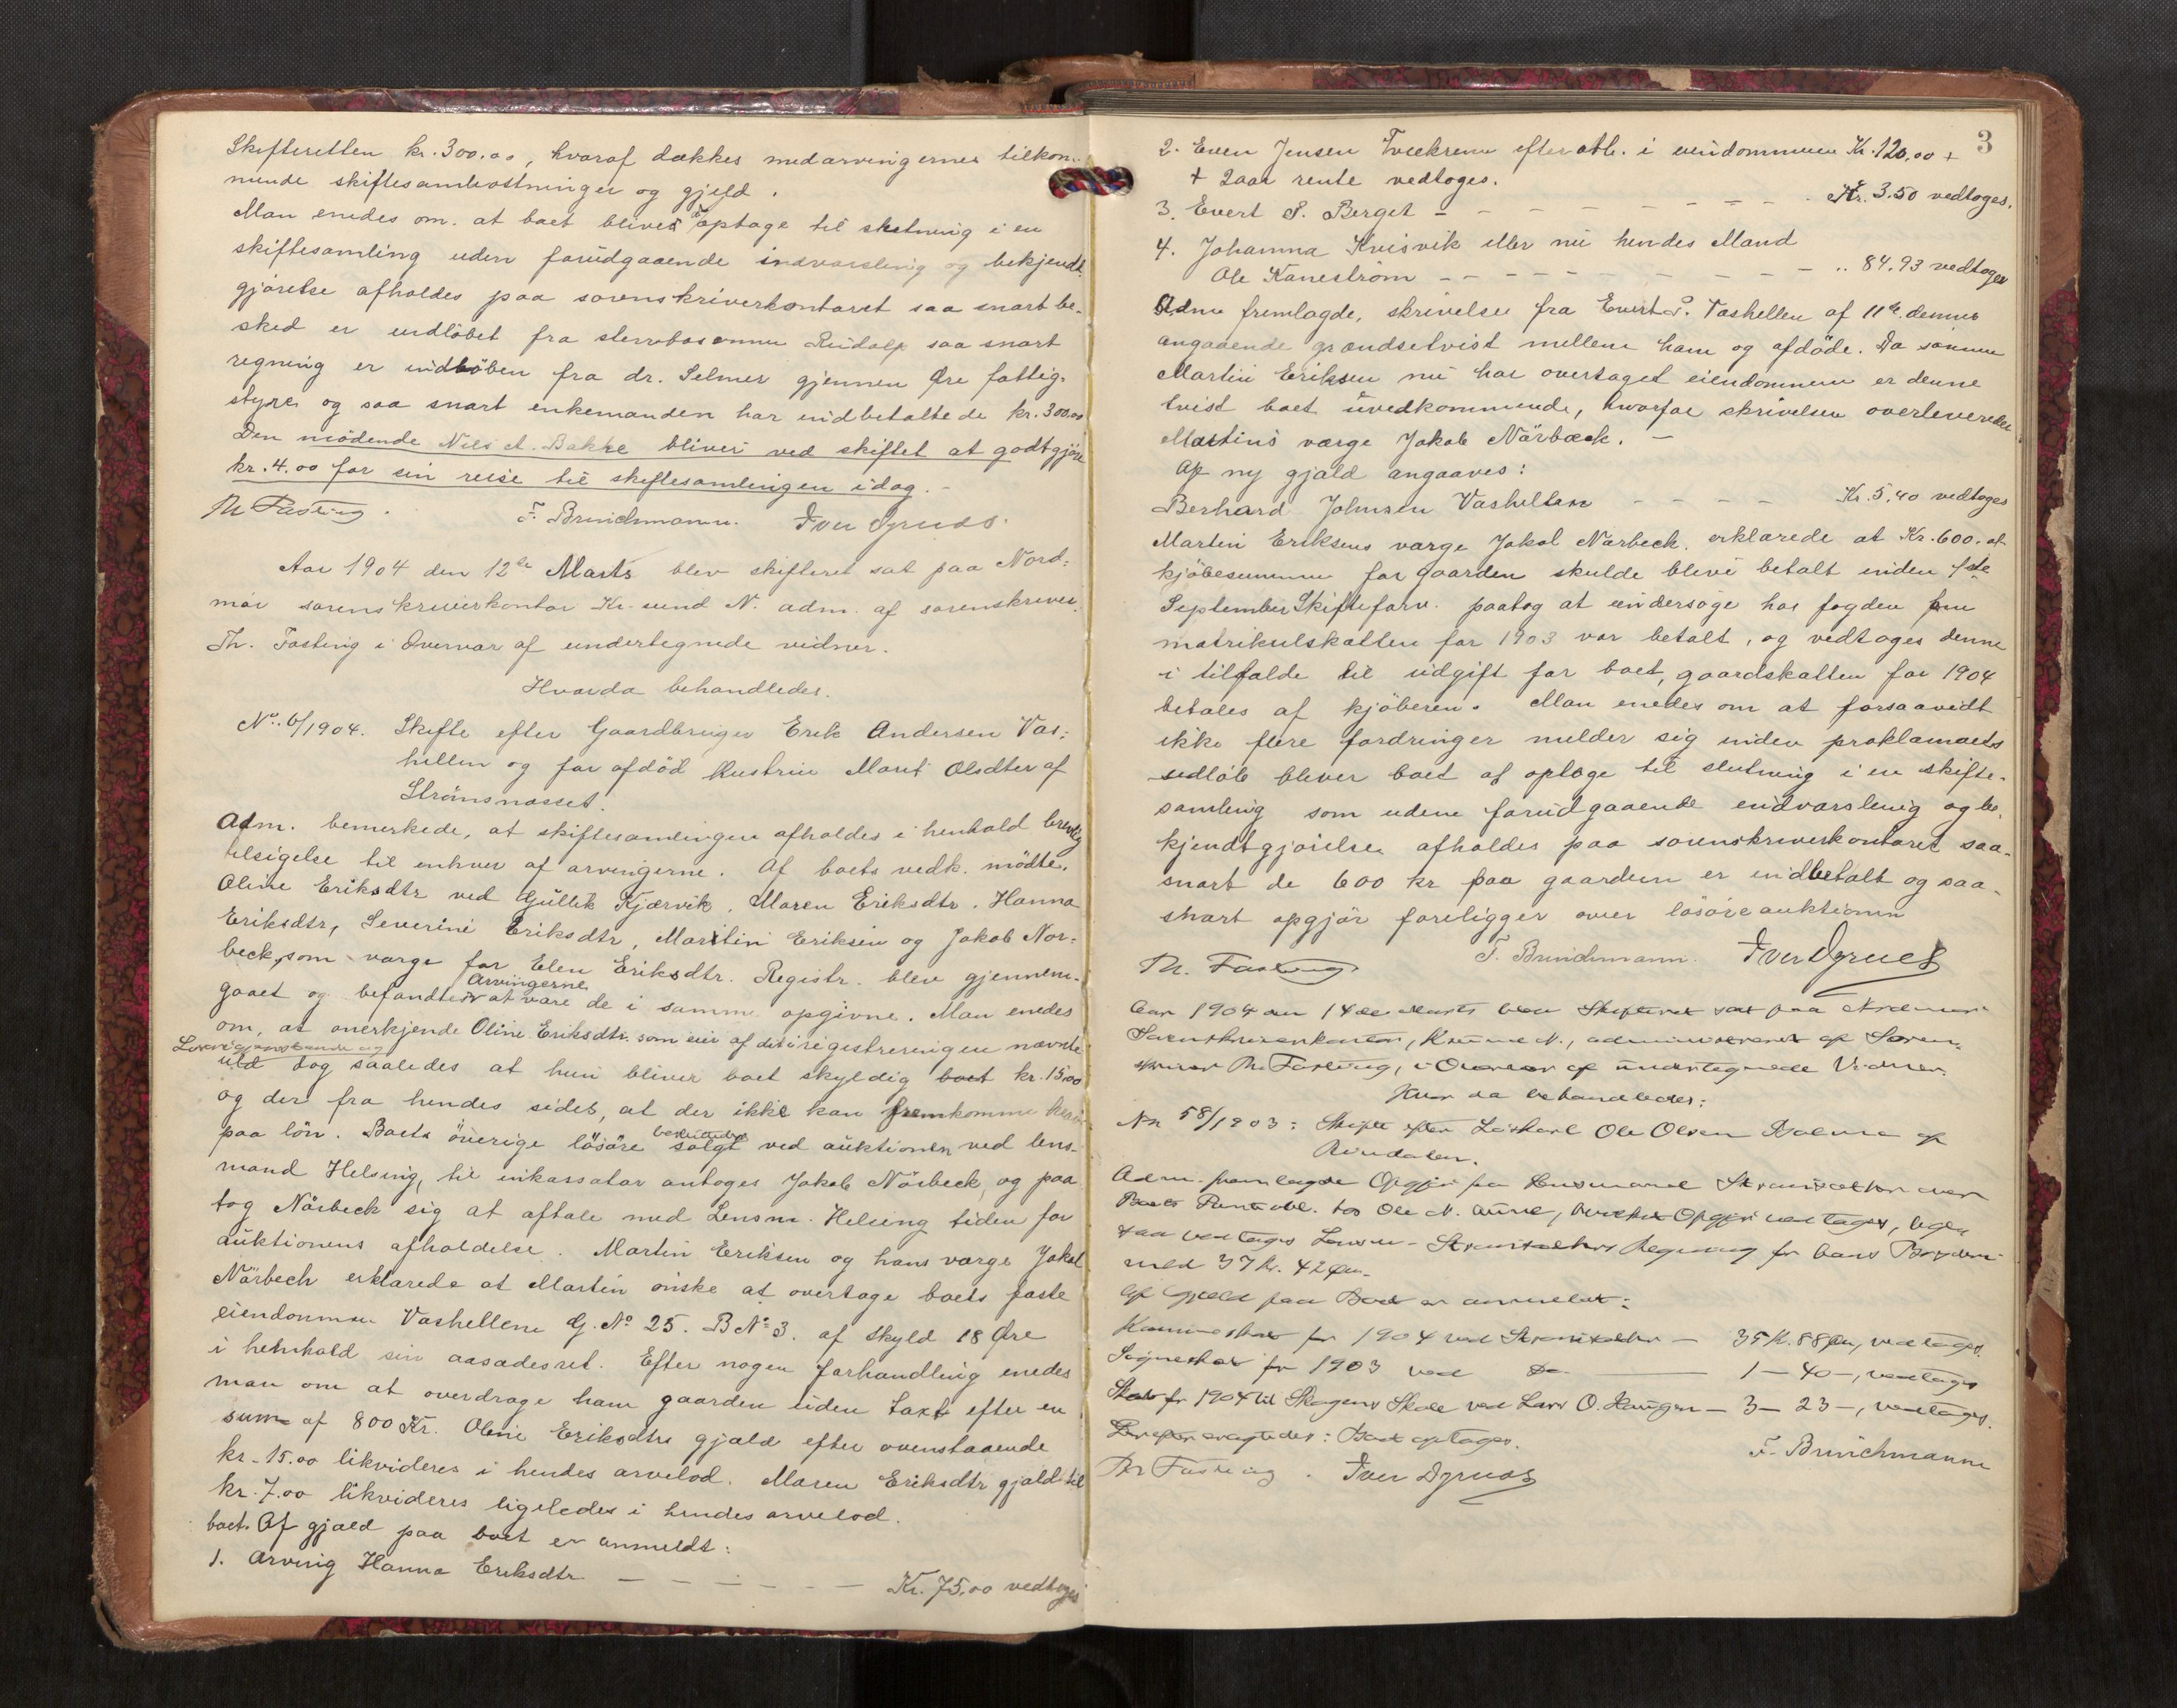 Skifteretten kr. 300.00, hvoraf dækkes medarvingernes tilkom-
mende skiftesomkostninger og gjeld.
Man enedes om. at boet bliver at optage til slutning i en
skiftesamling uden forudgaaende indvarsling og bekjendt-
gjørelse afholdes paa sorenskriverkontoret saa snart be-
sked er indløbet fra stervbosønnen Rudolf saa snart
regning er indløben fra dr. Selmer gjennem Øre fattig-
styre og saa snart enkemanden har indbetalte de kr. 300.00
Den mödende Nils A. Bakke bliver ved skiftet at godtgjøre
kr. 4.00 for sin reise til skiftesamlingen idag. -
Th. Fasting. F. Brinchmann. Iver Dyrnes.
Aar 1904 den 12te Marts blev skifteret sat paa Nord-
mør sorenskriverkontor Kr.sund N. adm. af sorenskriver
Th. Fasting i Overvær af undertegnede vidner.
Hvorda behandledes.
No. 6/1904. Skifte efter Gaardbruger Erik Andersen Vas-
hellen og før afdöd Hustru Marit Olsdter af
Strömsnæsset.
Adm. bemerkede, at skiftesamlingen afholdes i henhold brevlig
tilsigelse til enhver af arvingerne. Af boets vedk. mödte.
Oline Eriksdtr ved Gullik Kjørvik. Maren Eriksdtr. Hanna
Eriksdtr, Severine Eriksdtr, Martin Eriksen og Jakob Nor-
beck, som værge for Elen Eriksdtr. Registr. blev gjennem-
gaaet og befandtes Arvingerne at være de i samme opgivne. Man enedes
om, at anerkjende Oline Eriksdtr. som eier af de i registreringen nævnte
Løsøregjenstande og
uld dog saaledes at hun bliver boet skyldig boet kr. 15.00
og der fra hendes sides, at der ikke kan fremkomme krav
paa lön. Boets överige lösöre besluttedes solgt ved auktionen ved lens-
mand Helsing, til inkassator antoges Jakob Nörbeck, og paa
tog Nörbeck sig at aftale med Lensm. Helsing tiden for
auktionens afholdelse. Martin Eriksen og hans værge Jakob
Nörbech erklærede at Martin önske at overtage boets faste
eiendommen Vashellen G. No 25. B No 3. af Skyld 18 Øre
i henhold sin aasædesret. Efter nogen forhandling enedes
man om at overdrage ham gaarden uden taxt efter en
sum af 800 Kr. Oline Eriksdtrs gjæld efter ovenstaaende
kr. 15.00 likvideres i hendes arvelod. Maren Eriksdtr gjæld til
kr. 7.00 likvideres ligeledes i hendes arvelod.
boet. Af gjæld paa boet er anmeldt:
1. Arving Hanna Eriksdtr. — — — — — — Kr. 75.00 vedtoges
3
2. Even Jensen Tveekrem efter obl. i eiendommen Kr. 120,00 +
+ 2aar rente vedtoges.
3. Evert P. Berget - - - - - - - - - Kr. 3.50 vedtoges.
4. Johanna Kvisvik eller nu hendes Mand
Ole Kanestrøm - - - - - - - - - - .. 84.93 vedtoges
Adm fremlagde, skrivelse fra Evert P. Vashellen af 11te dennes
angaaende grændsetvist mellem ham og afdöde. Da sønnen
Martin Eriksen nu har overtaget eiendommen er denne
tvist boet uvedkommende, hvorfor skrivelsen overleveredes
Martins værge Jakob Nörbæck. -
Af ny gjæld angaaves:
Berhard Johnsen Vashellen - - - - Kr. 5.40 vedtoges
Martin Eriksens værge Jakob Nærbeck. erklærede at Kr. 600. af
kjöbesummen for gaarden skulde blive betalt inden 1ste
September Skifteforv. paatog at undersøge hos fogden om
matrikulskatten for 1903 var betalt, og vedtoges denne
i tilfælde til udgift for boet, gaardskatten for 1904
betales af kjöberen. Man enedes om at forsaavidt
ikke flere fordringer melder sig inden proklamaets
udløb bliver boet at optage til slutning i en skifte-
samling som uden forudgaaende indvarsling og be-
kjendtgjørelse afholdes paa sorenskriverkontoret saa-
snart de 600 kr paa gaarden er indbetalt og saa-
snart opgjör foreligger over lösöreauktionen
Th. Fasting F. Brinchmann. Iver Dyrnes
Aar 1904 den 14de Marts blev Skifteret sat paa Nordmørs
Sorenskriverkontor, Kr.sund N., administreret af Soren-
skriver Th. Fasting, i Overvær af undertegnede Vidner.
Hvor da behandledes:
No 58/1903: Skifte efter Løskarl Ole Olsen Holmen af
Rindalen.
Adm. fremlagde Opgjør fra Lensmand over
Boets hos Ole N. Aune, hvilket Opgjør vedtages, lige-
saa vedtages Lensm. Regning for hans
med 37 Kr. 42 Øre.
Af Gjæld paa Boet er anmeldt:
Kommuneskat for 1904 ved — 35 Kr. 88 Øre, vedtages.
Sogneskat for 1903 ved Do — 1 — 40 —, vedtages
Skat for 1904 til Skagens Skole ved Lars O. Haugen — 3 — 23 —, vedtages.
Derefter eragtedes: Boet optages.
Th Fasting. Iver Dyrnes F. Brinchmann